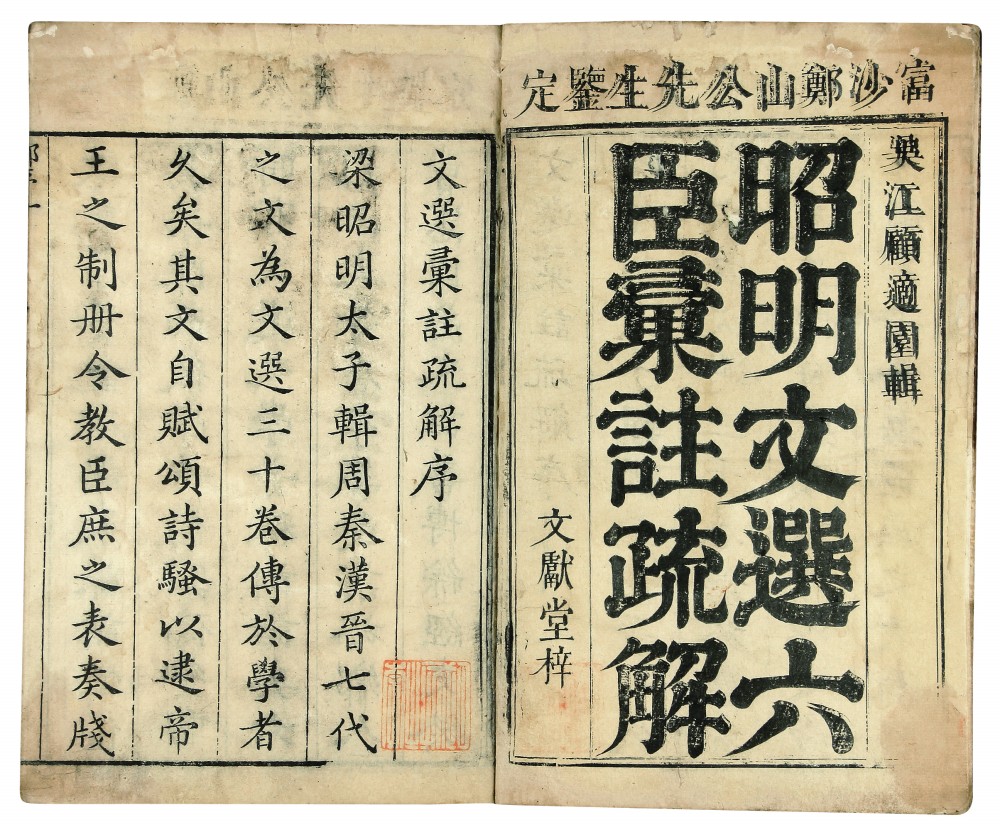 富沙鄭山公先生鑒定
吴江顧適園輯
昭明文選六
臣彙註疏解
文獻堂梓
文選彙註疏解序
梁昭明太子輯周秦漢晉七代
之文為文選三十卷傳於學者
久矣其文自賦頌詩騷以逮帝
王之制册令教臣庶之表奏牋